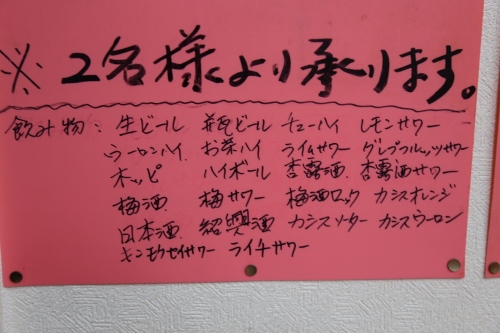 ※2名様より承ります。
飲み物：生ビール 瓶ビール チューハイ レモンサワー
ウーロンハイ お茶ハイ ライムサワー グレープフルーツサワー
ホッピー ハイボール 杏露酒 杏露酒サワー
梅酒 梅サワー 梅酒ロック カシスオレンジ
日本酒 紹興酒 カシスソーダー カシスウーロン
キンモクセイサワー ライチサワー